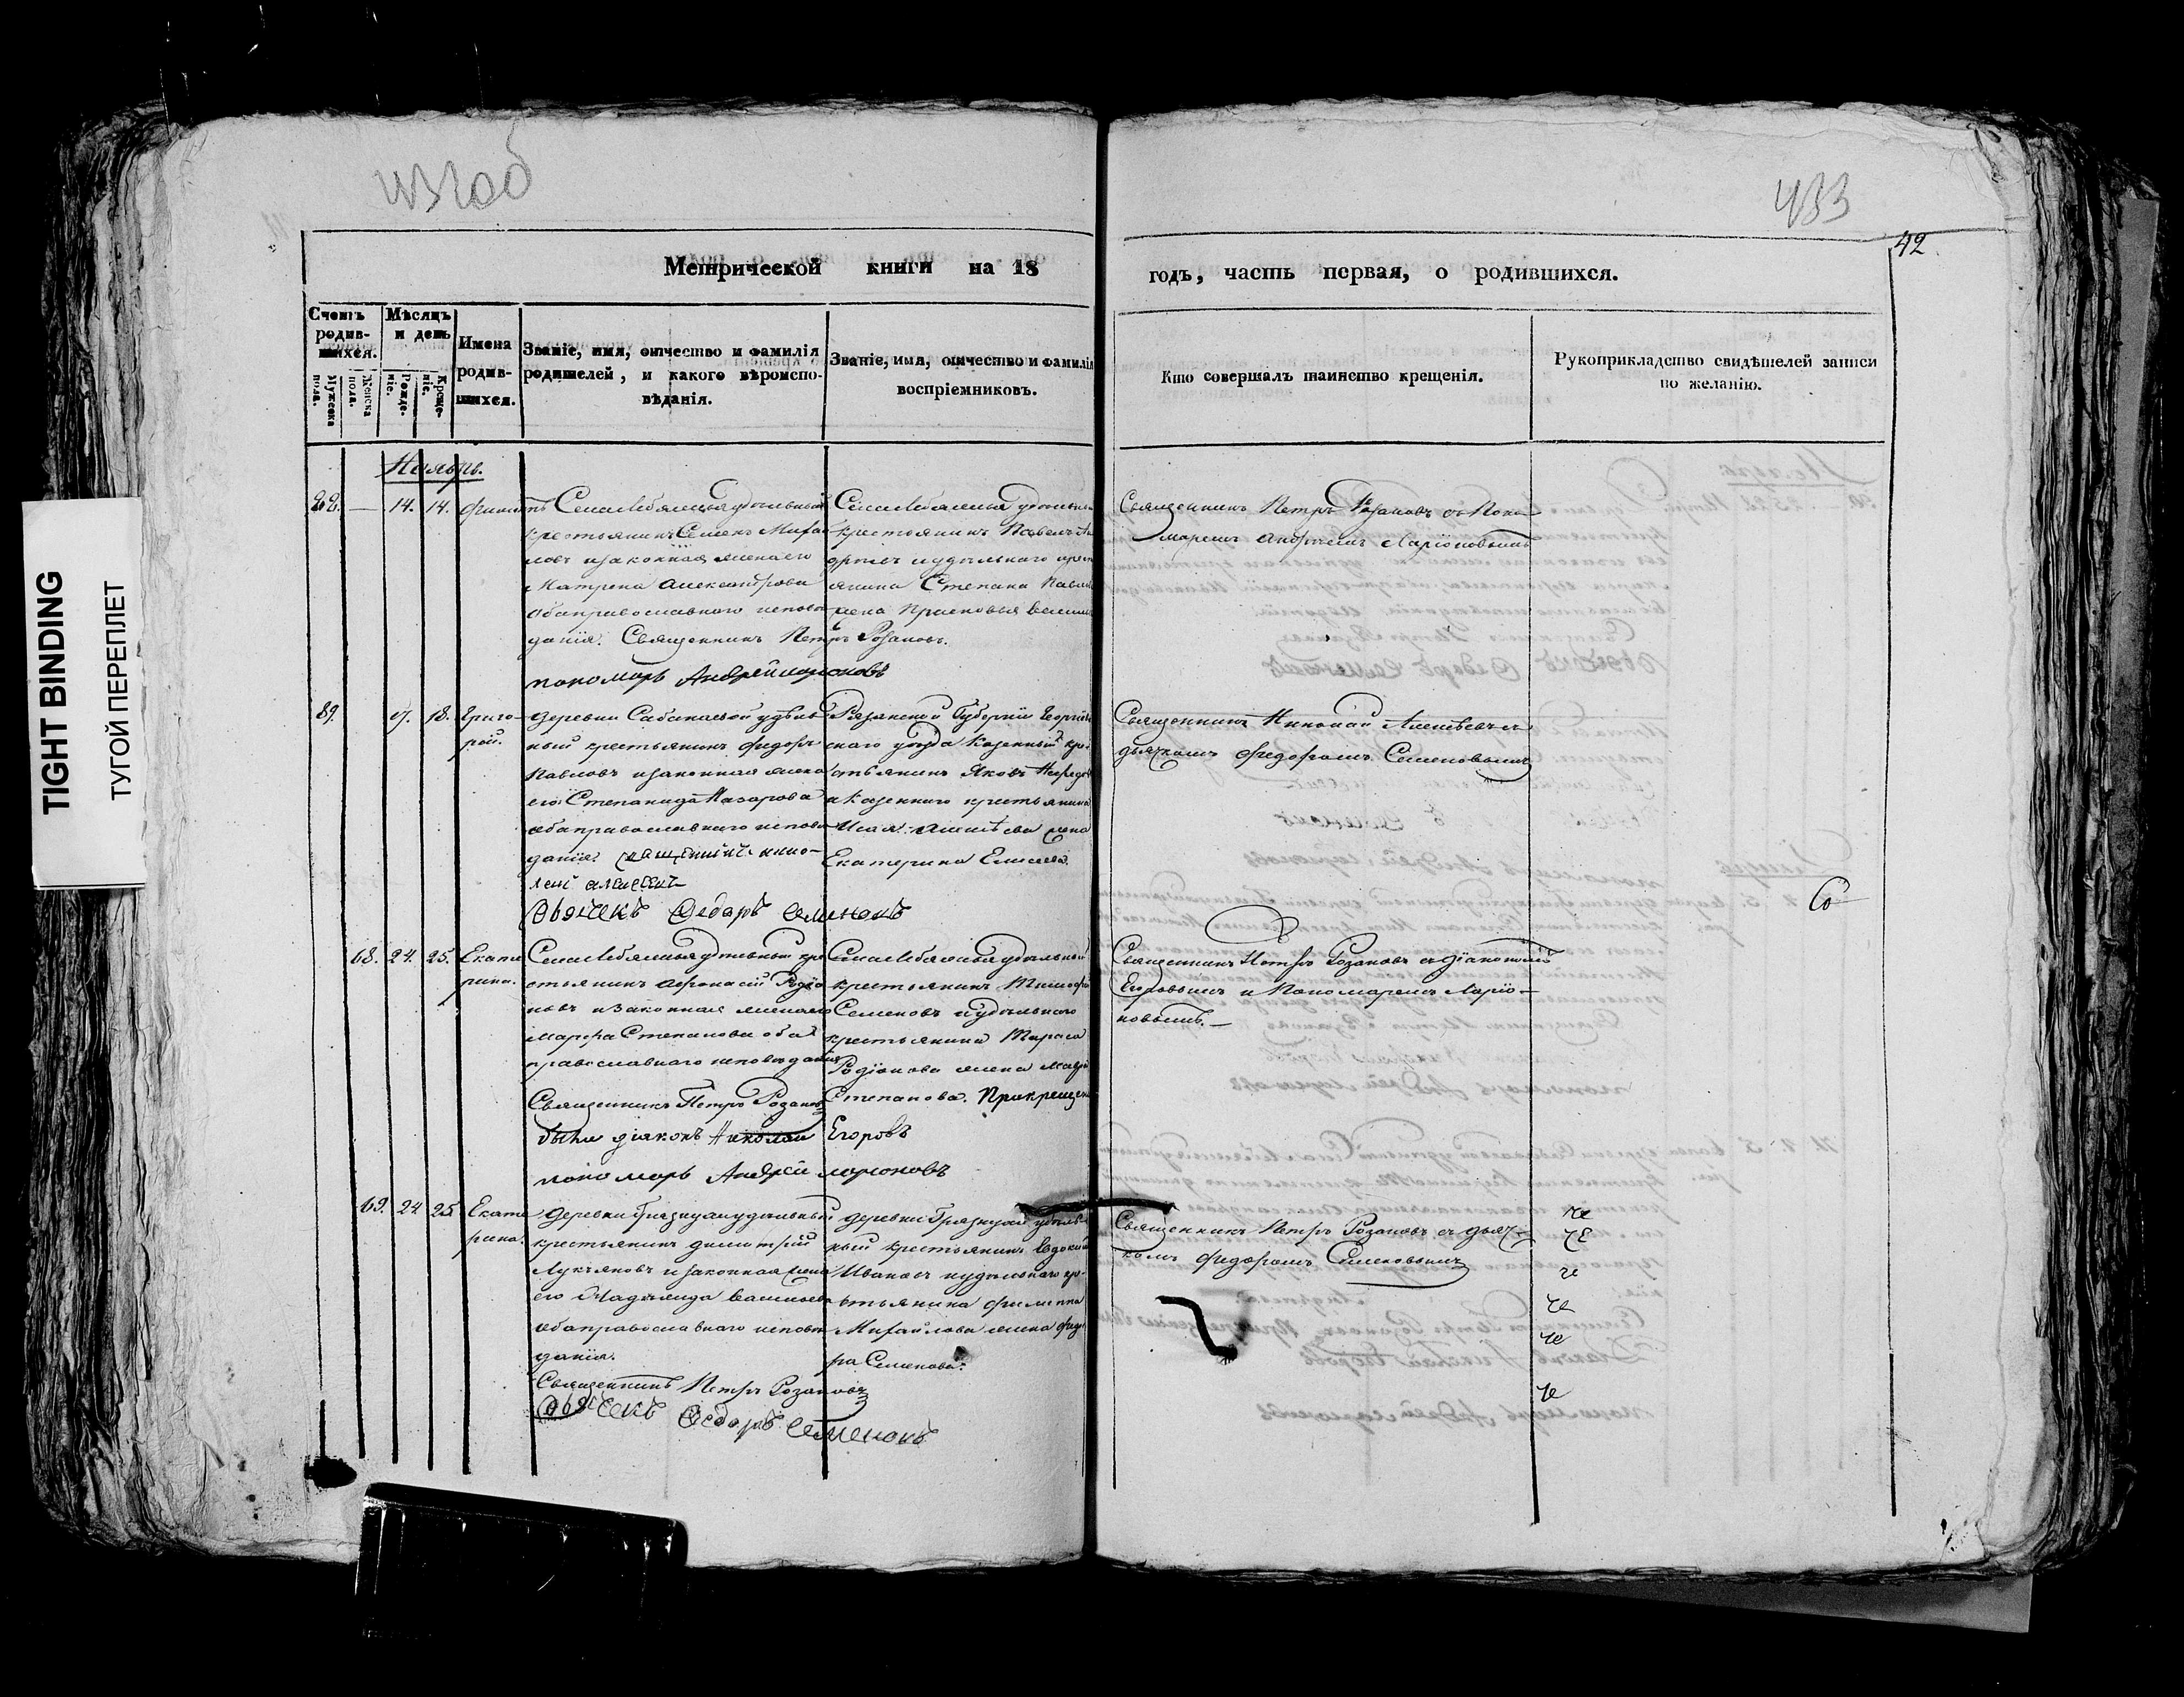 TIGHT BINDING
ТУГОЙ ПЕРЕПЛЕТ
433
42.
Метрической книги на 18
годъ, часть первая, о родившихся.
Счетъ родившихся.
Мужеска пола.
Женска пола.
Мѣсяцъ и день
Рожденіе.
Крещеніе.
Имена родившихся.
Званіе, имя, отчество и фамилія
родителей, и какого вѣроиспо-
вѣданія.
Званіе, имя, отчество и фамилія
воспріемниковъ.
Кто совершалъ таинство крещенія.
Рукоприкладство свидѣтелей записи
по желанію.
Ноябрь.
88. — 14. 14.
Села Лебяжья удѣльный
крестьянинъ Семенъ Михай
ловъ изаконная жена его
Матрена Александрова
оба православнаго испове
данія. Священникъ Петръ Розановъ.
пономарь Андрей Ларионовъ
Села Лебяжья удѣльный
крестьянинъ Павелъ
удѣльнаго крест
янина Степана
жена Прасковья
Священникъ Петръ Розановъ съ Поно
маремъ Андреемъ Ларіоновымъ
89. 17. 18. Григо-
рій.
Деревни Сабакаевой удѣль
ный крестьянинъ Федоръ
Павловъ изаконная жена
его Степанида Назарова
оба православнаго испове
данія. священникъ нико-
лай алексѣевъ
Дьячекъ Федоръ Семеновъ
Рязанской Губерніи
скаго уѣзда Казенный кре
стьянинъ Яковъ
и Казеннаго крестьянина
жена
Екатерина Елисеева.
Священникъ Николай Алексѣевъ съ
дьячкомъ Федоромъ Семеновымъ
68. 24. 25. Екате
рина.
Села Лебяжья удѣльный кре
стьянинъ Афонасій Родіо
новъ изаконная жена его
Марфа Степанова оба
православнаго исповѣданія
Священникъ Петръ Розановъ
были діаконъ Николай Егоровъ
пономарь Андрей ларионовъ
Села Лебяжья удѣльный
крестьянинъ Тимофей
Семеновъ и удѣльнаго
крестьянина Тараса
Родіонова жена Мавра
Степанова. При крещеніи
Священникъ Петръ Розановъ съ діакономъ
Егоровымъ и Пономаремъ Ларіо-
новымъ.—
69. 24 25 Екате
рина.
Деревни Грязнухи удѣльный
крестьянинъ Димитрій
Лукьяновъ изаконная жена
его Надежда Васильева
оба православнаго исповѣ
данія.
Священникъ Петръ Розановъ
Дьячекъ Федоръ Семеновъ
Деревни Грязнухи удѣль
ный крестьянинъ Евдокимъ
Ивановъ и удѣльнаго кре
стьянина Филиппа
Михайлова жена Федо
ра Семенова.
Священникъ Петръ Розановъ съ дьяч-
комъ Федоромъ Семеновымъ